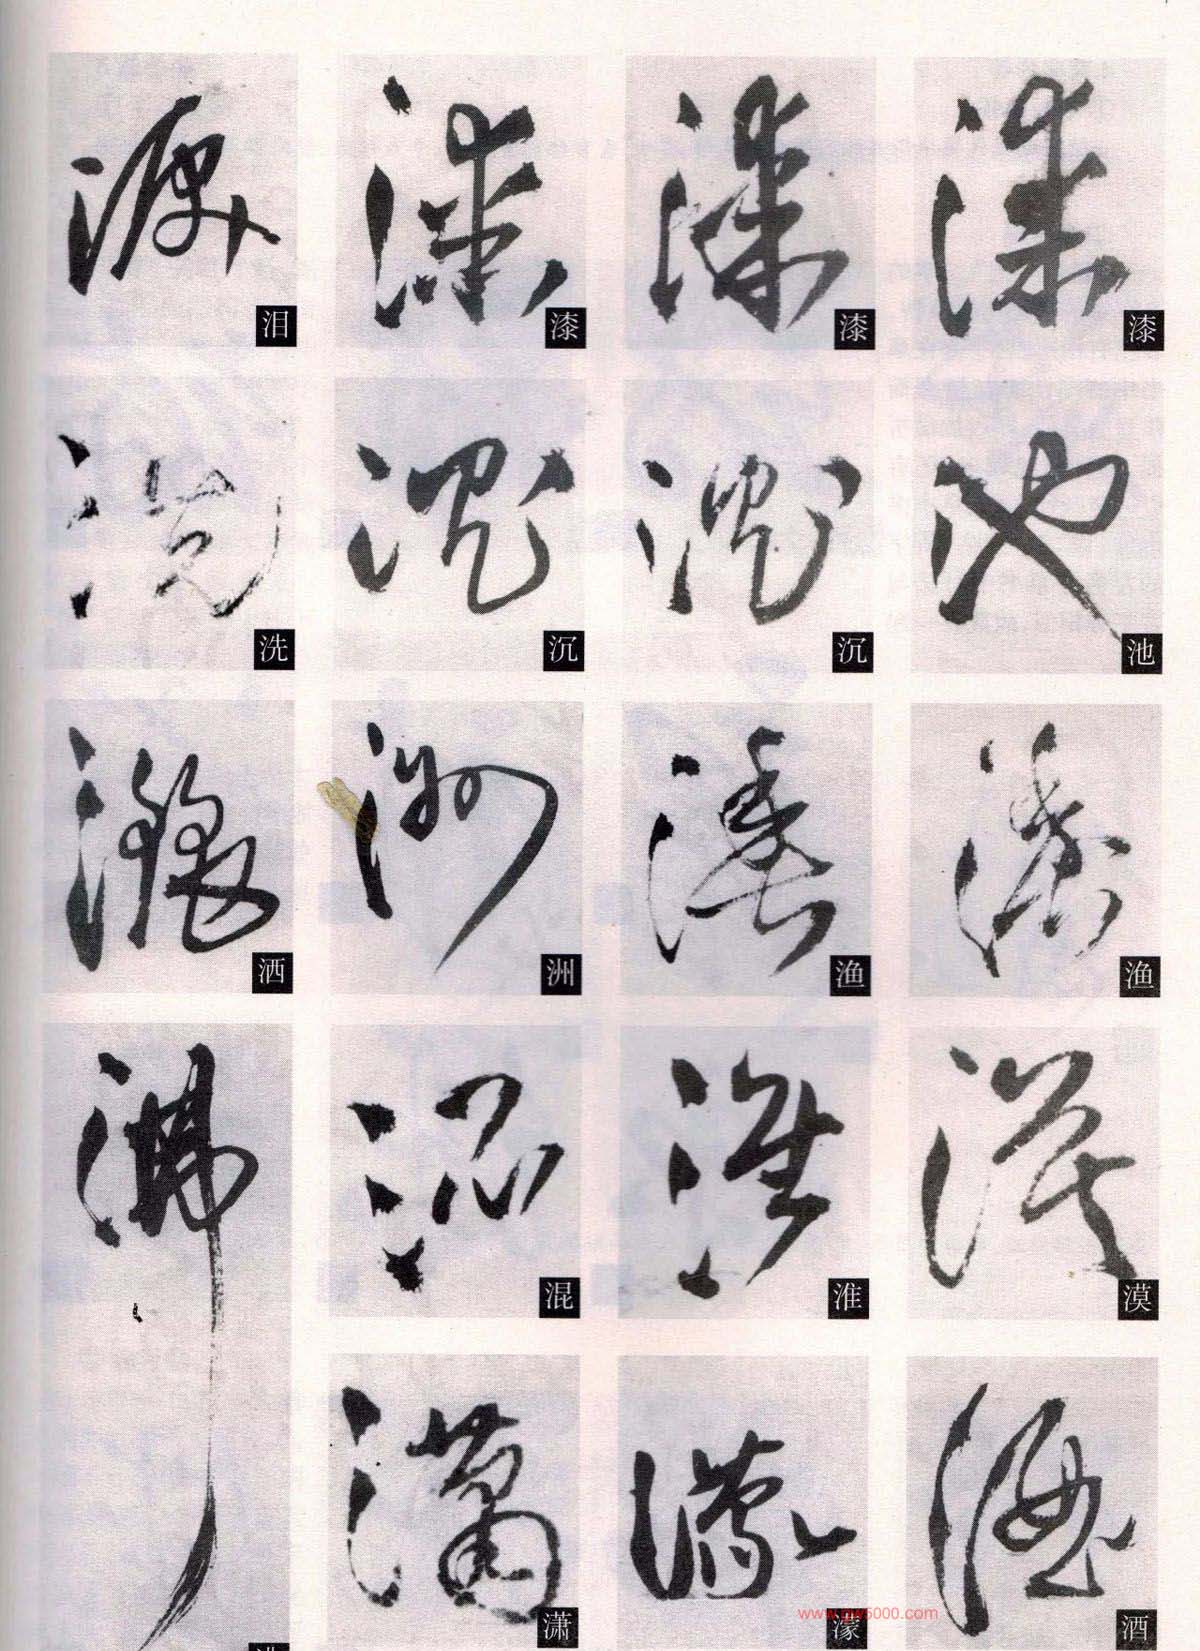 泪 漆 漆 漆
洗 沉 沉 池
洒 洲 渔 渔
混 淮 漠
潇 濛 酒
www.gw5000.com